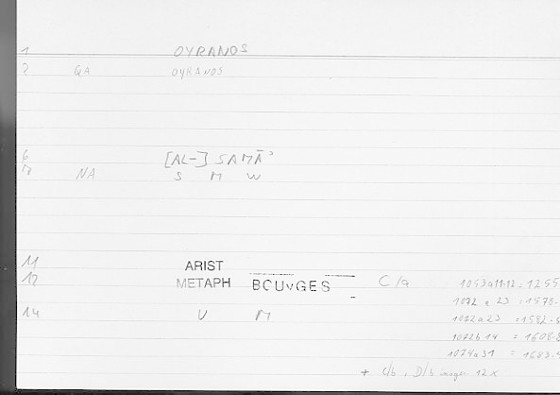 1 OYRANOS
2 GA OYRANOS
6 [AL-] SAMĀʾ
7 NA S M W
11 ARIST
12 METAPH BOUYGES C/a 1053a11-12 = 1255
1072 a 23 = 1578-
1072a23 = 1592-
1072b14 = 1608-
1074a31 = 1683-
14 U M
+ C/b, D/b 12x